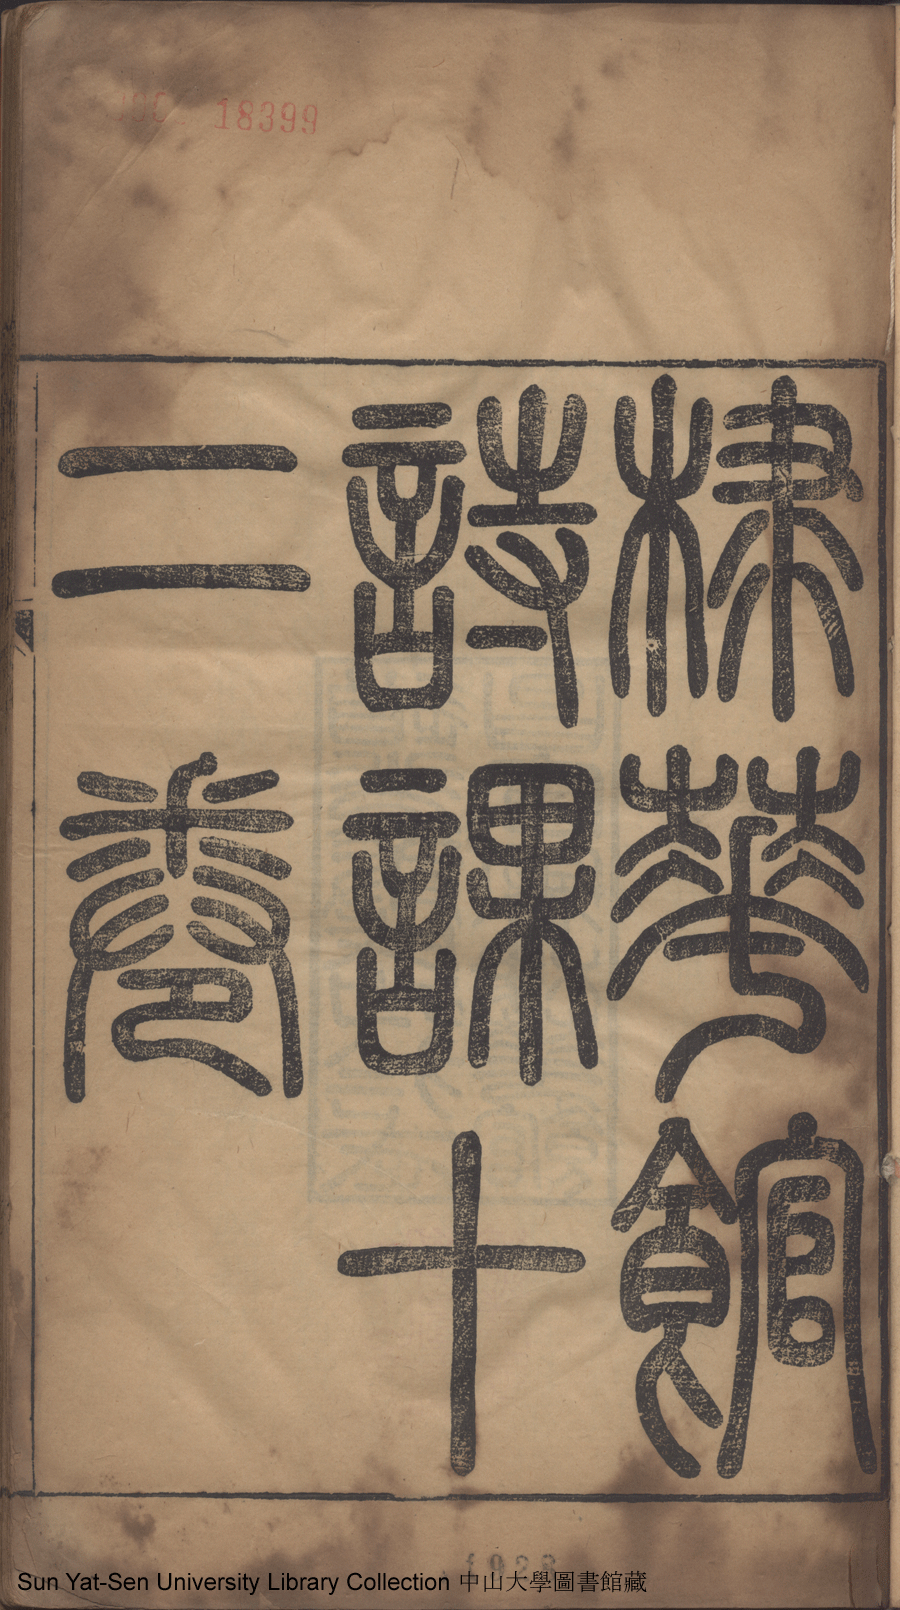 18399
棣華館
詩課十
二卷
1938
Sun Yat-Sen University Library Collection 中山大學圖書館藏